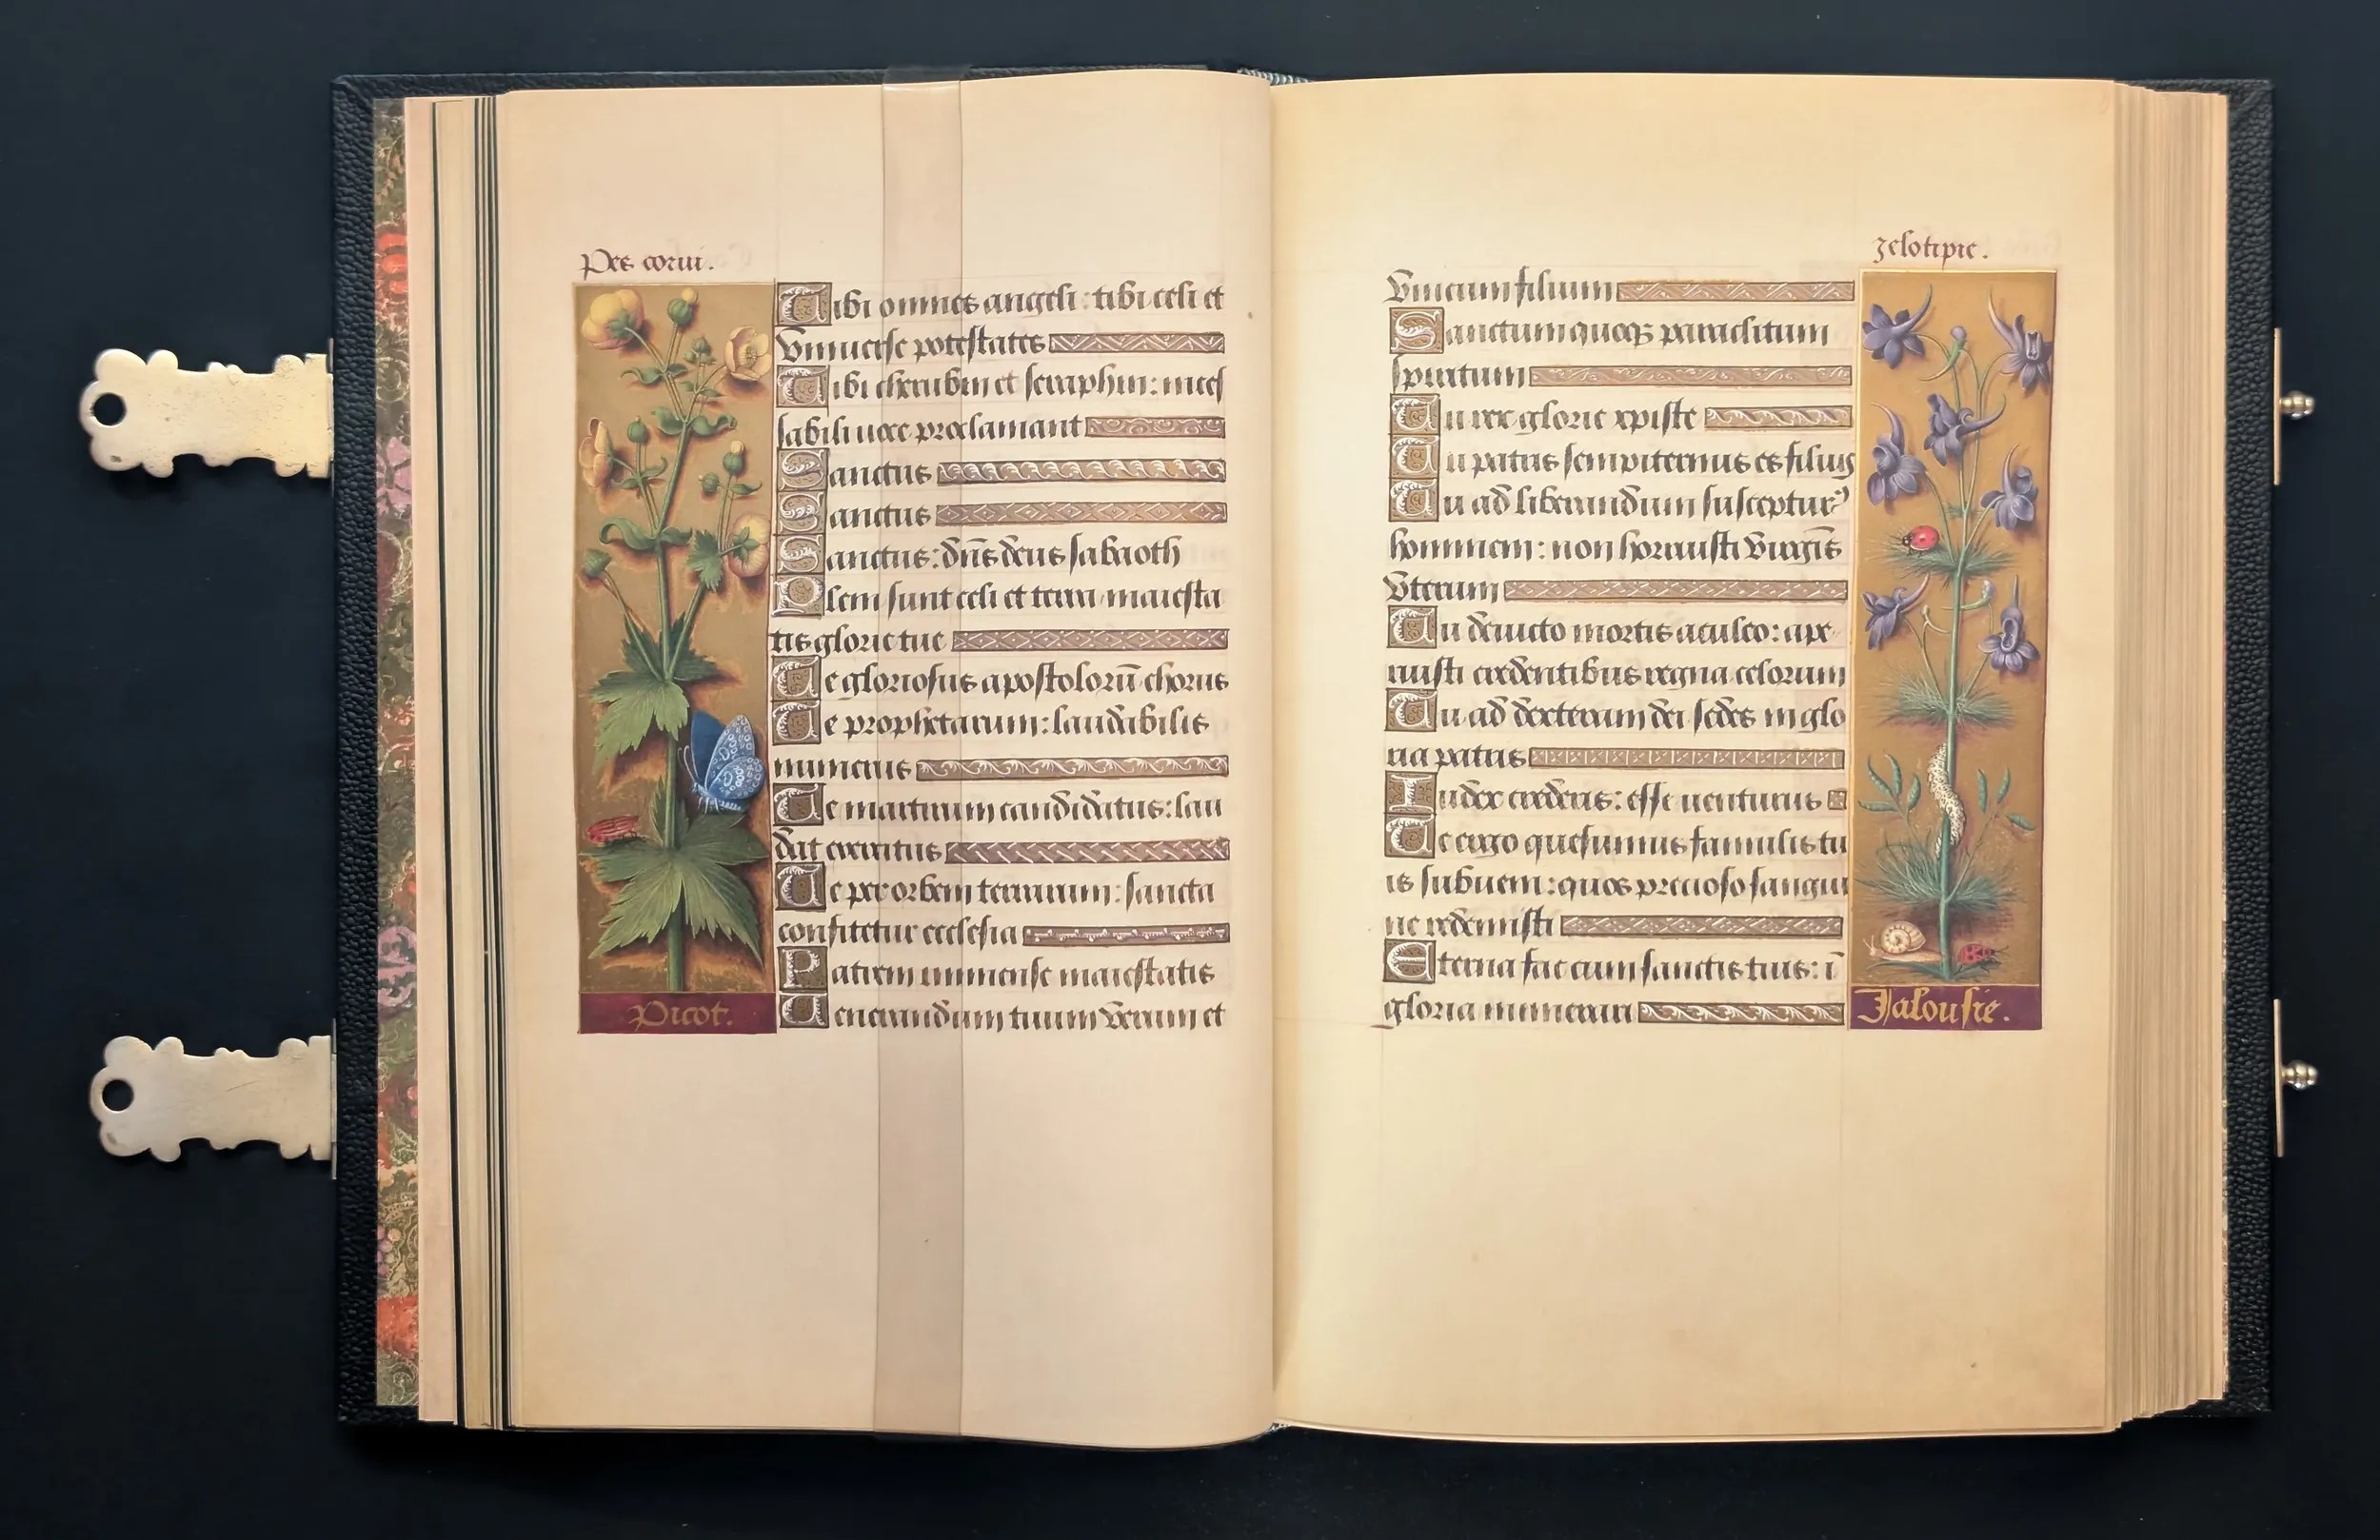 Pes corui.
Tibi omnes angeli: tibi celi et
Vniuerse potestates
Tibi cherubin et seraphin: inces
sabili uoce proclamant
Sanctus
Sanctus
Sanctus: dn̄s deus sabaoth
Pleni sunt celi et terra maiesta
tis glorie tue
Te gloriosus apostolorū chorus
Te prophetarum: laudabilis
numerus
Te martirum candidatus: lau
dat exercitus
Te per orbem terrarum: sancta
confitetur ecclesia
Patrem immense maiestatis
Uenerandum tuum Verum et
Picot.
zelotipie.
Vnicum filium
Sanctum quoqꝫ paraclitum
spiritum
Tu rex glorie xpiste
Tu patris sempiternus es filius
Tu ad liberandum susceptur᾿
hominem: non horruisti Virgīs
Vterum
Tu deuicto mortis aculeo: ape
ruisti credentibus regna celorum
Tu ad dexteram dei sedes in glo
ria patris
Iudex crederis: esse uenturus
Te ergo quesumus famulis tu
is subueni: quos precioso sangui
ne redemisti
Eterna fac cum sanctis tuis: ī
gloria numerari
Jalousie.